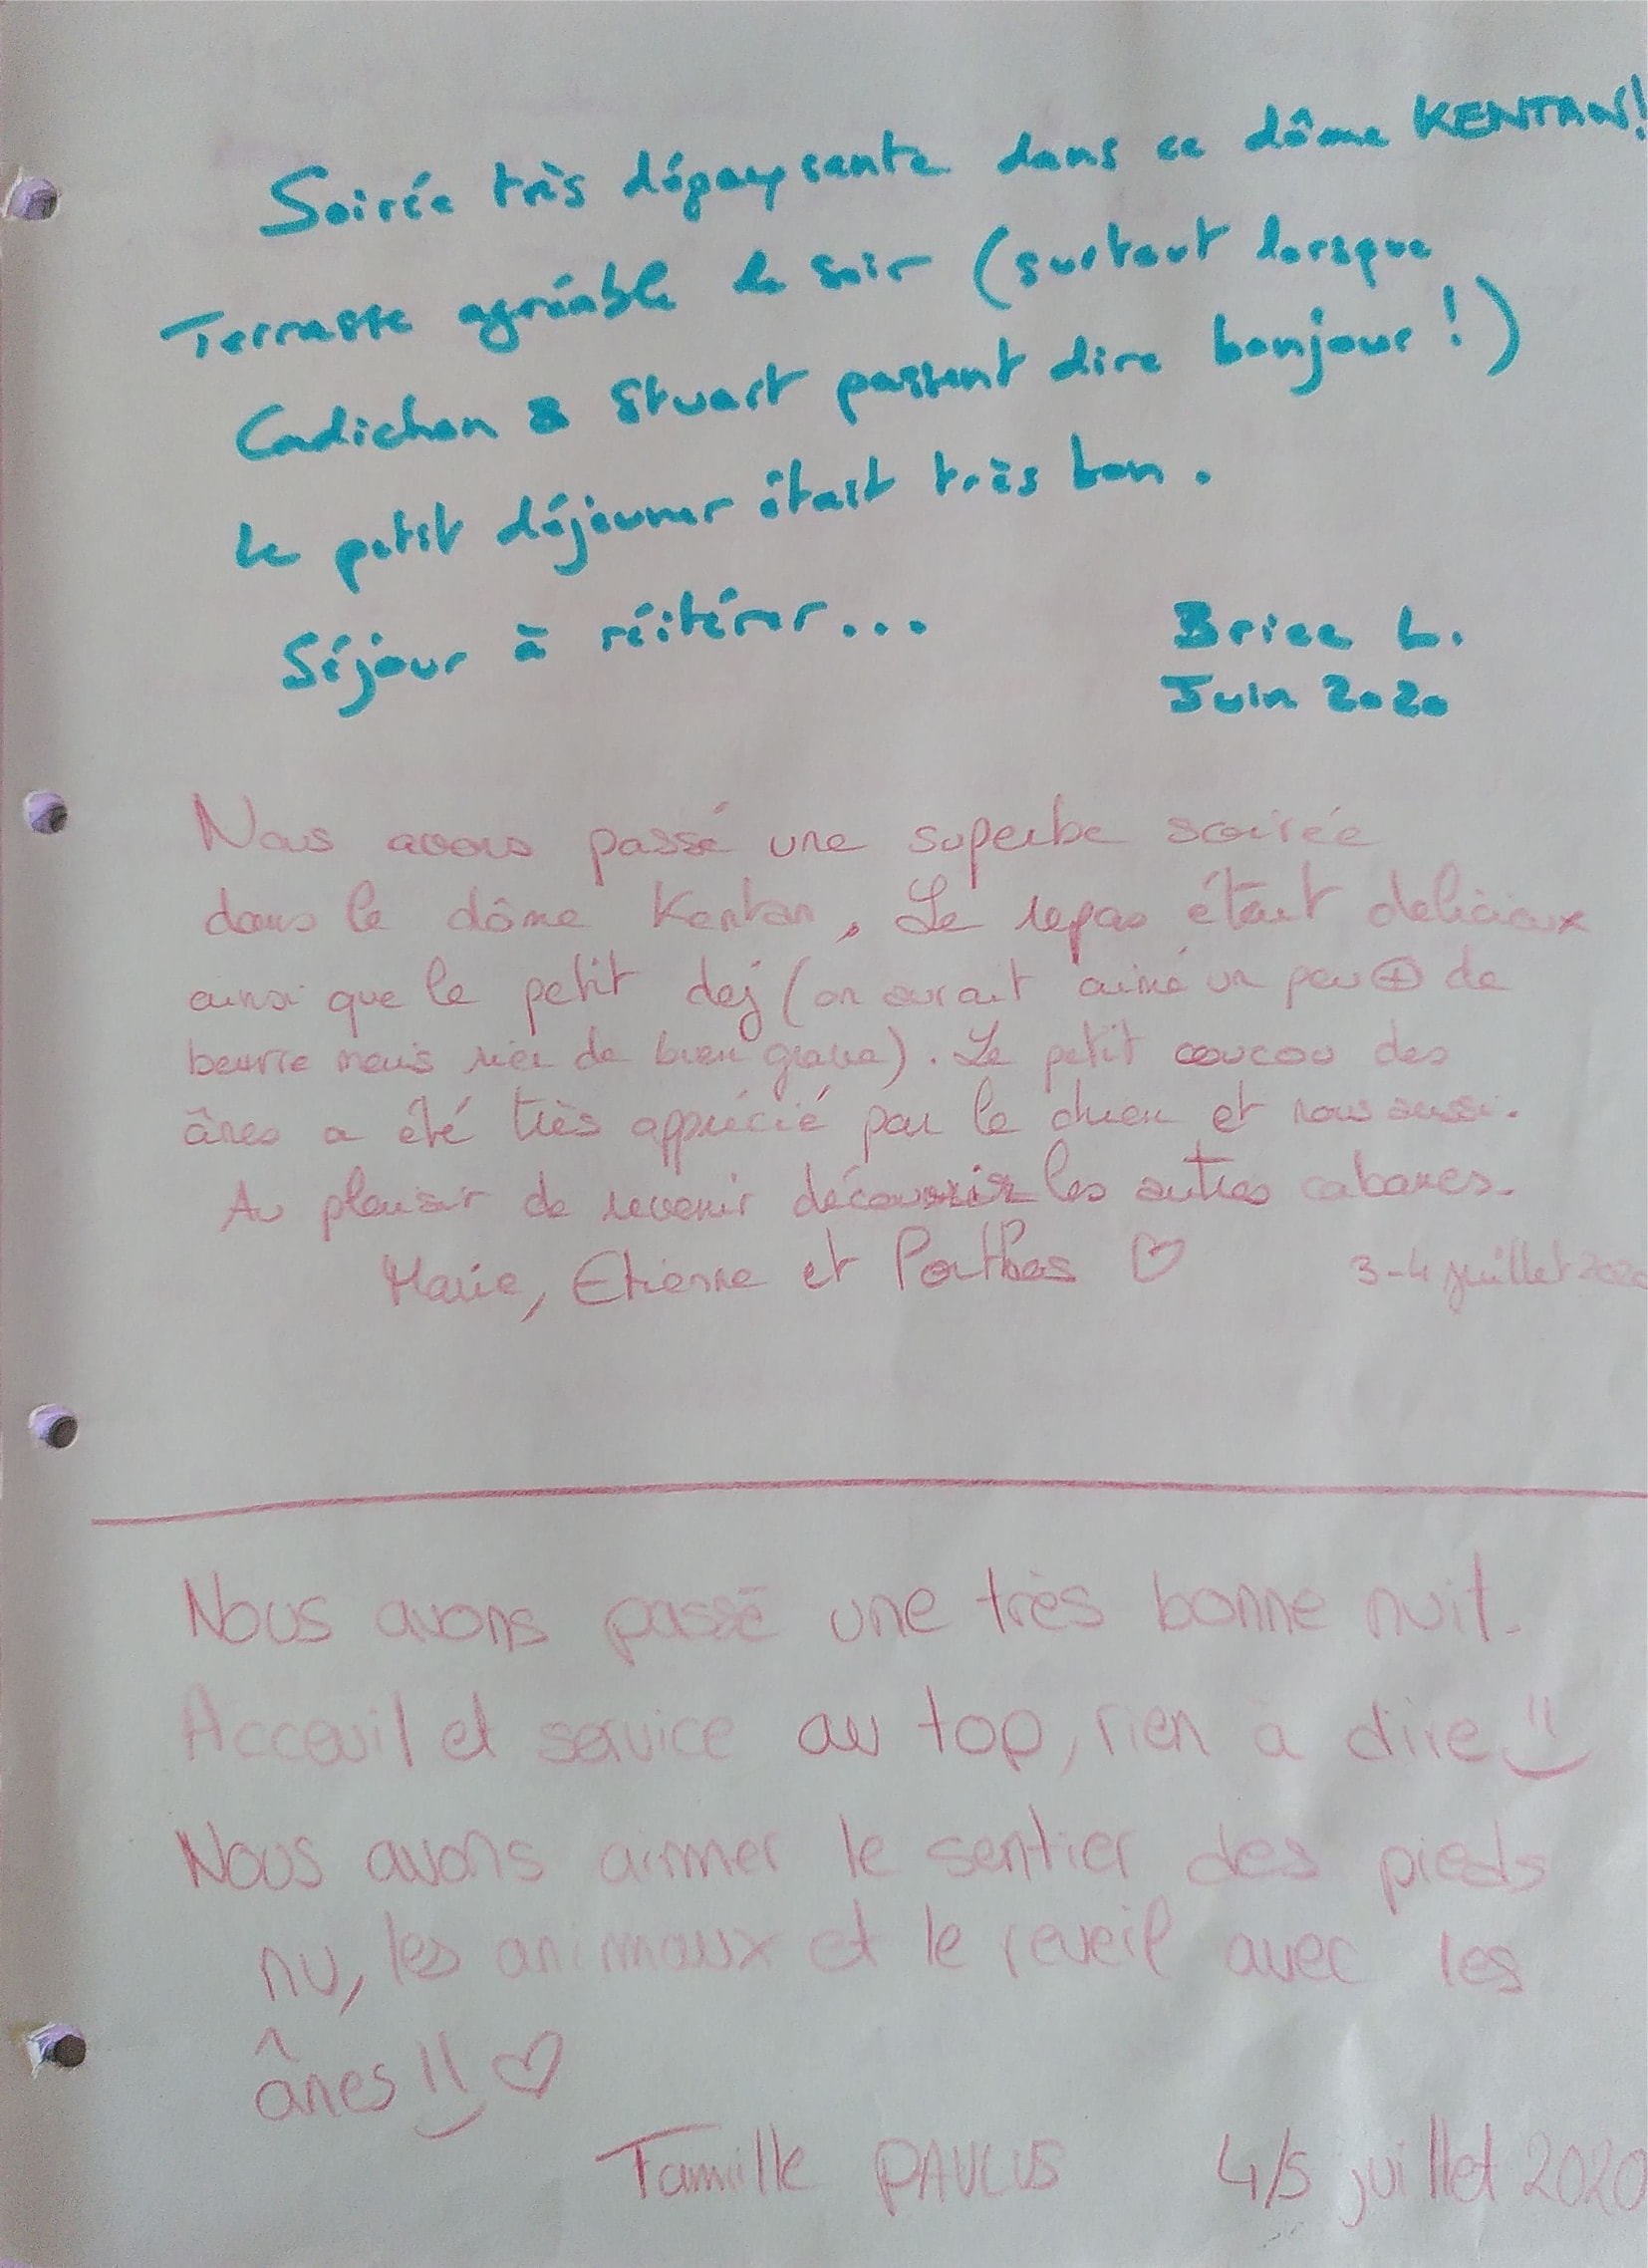 Soirée très dépaysante dans ce dôme KENTAN!
Terrasse agréable le soir (surtout lorsque
Cadichon & Stuart passent dire bonjour !)
Le petit déjeuner était très bon.
Séjour à réitérer...
Brice L.
Juin 2020
Nous avons passé une superbe soirée
dans le dôme Kentan. Le repas était delicieux
ainsi que le petit dej (on aurait aimé un peu ⊕ de
beurre mais rien de bien grave). Le petit coucou des
ânes a été très apprécié par le chien et nous aussi.
Au plaisir de revenir découvrir les autres cabanes.
Marie, Etienne et Porthos ♡
3-4 juillet 2020
Nous avons passé une très bonne nuit.
Acceuil et service au top, rien à dire :)
Nous avons aimer le sentier des pieds
nu, les animaux et le reveil avec les
ânes !! ♡
Famille PAULUS 4/5 juillet 2020